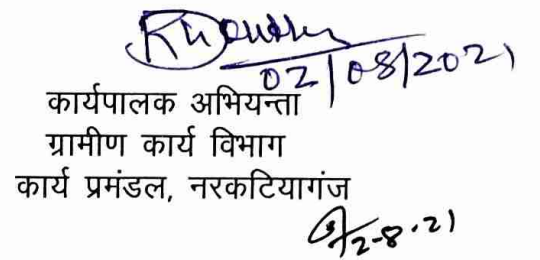 02/08/2021
कार्यपालक अभियन्ता
ग्रामीण कार्य विभाग
कार्य प्रमंडल, नरकटियागंज
2-8-21